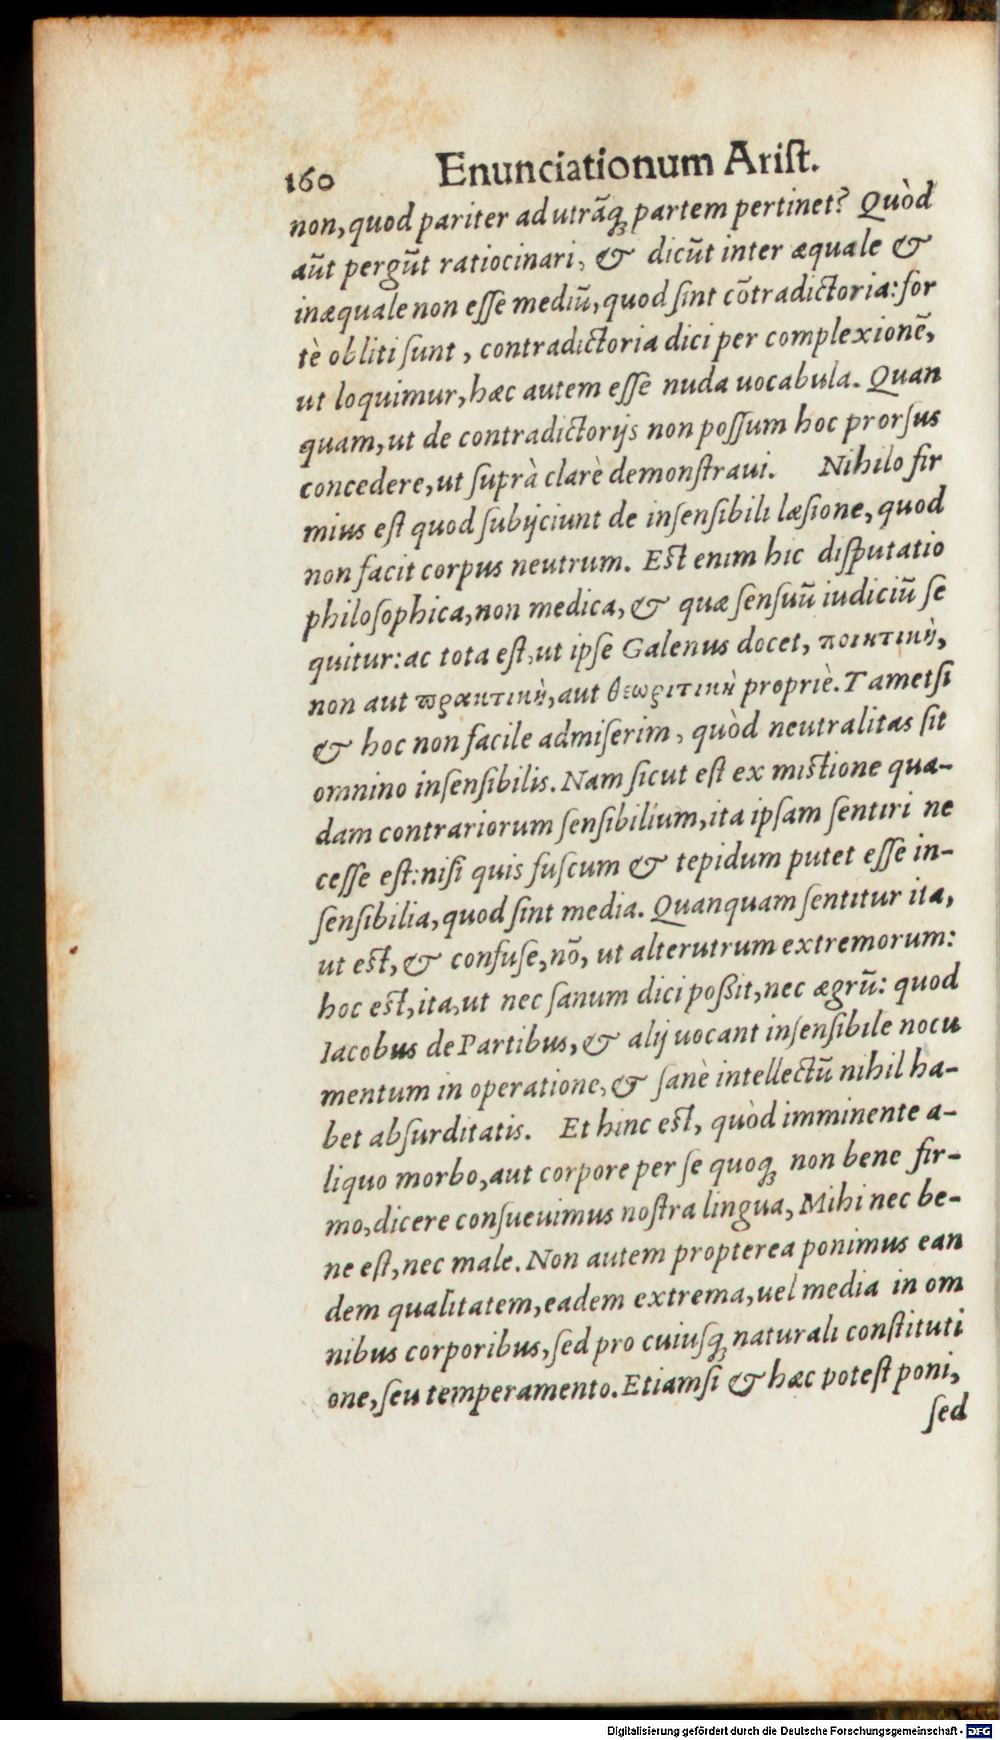 160 Enunciationum Arist.
non, quod pariter ad utrãq́ꝫ partem pertinet? Quòd
aũt pergũt ratiocinari, & dicũt inter æquale &
inæquale non eſſe mediũ, quod ſint cõtradictoria: for
tè obliti ſunt, contradictoria dici per complexionẽ,
ut loquimur, hæc autem eſſe nuda uocabula. Quan
quam, ut de contradictorijs non poſſum hoc prorſus
concedere, ut ſuprà clarè demonſtraui. Nihilo fir
mius eſt quod ſubijciunt de inſenſibili læſione, quod
non facit corpus neutrum. Eſt enim hic diſputatio
philoſophica, non medica, & quæ ſenſuũ iudiciũ ſe
quitur: ac tota eſt, ut ipſe Galenus docet, ποικτικὴ,
non aut πρακτικὴ, aut θεωριτικὴ propriè. Tametſi
& hoc non facile admiſerim, quòd neutralitas ſit
omnino inſenſibilis. Nam ſicut eſt ex miſtione qua-
dam contrariorum ſenſibilium, ita ipſam ſentiri ne
ceſſe eſt: niſi quis fuſcum & tepidum putet eſſe in-
ſenſibilia, quod ſint media. Quanquam ſentitur ita,
ut eſt, & confuſe, nõ, ut alterutrum extremorum:
hoc eſt, ita, ut nec ſanum dici poßit, nec ægrũ: quod
Iacobus de Partibus, & alij uocant inſenſibile nocu
mentum in operatione, & ſanè intellectũ nihil ha-
bet abſurditatis. Et hinc eſt, quòd imminente a-
liquo morbo, aut corpore per ſe quoqꝫ non bene fir-
mo, dicere conſueuimus noſtra lingua, Mihi nec be-
ne eſt, nec male. Non autem propterea ponimus ean
dem qualitatem, eadem extrema, uel media in om
nibus corporibus, ſed pro cuiuſqꝫ naturali conſtituti
one, ſeu temperamento. Etiamſi & hæc poteſt poni,
ſed
Digitalisierung gefördert durch die Deutsche Forschungsgemeinschaft - DFG